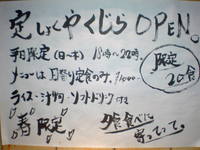 定しょくやくじら OPEN。
平日限定(日〜木) 18時〜22時。
メニューは日替り定食のみ。¥1000-
限定
20食
ライス・汁物・ソフトドリンク付き
春限定
夕食食べに
寄ってって。